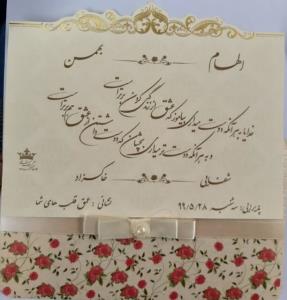 اطهام
بهمن
خدایا به هر آنکه دوست میداری بیاموز که عشق از زندگی کردن برتر است
و به هر آنکه دوست تر میداری بچشان که دوست داشتن از عشق هم برتر است
شفائی
خاکزاد
پذیرایی: سه شنبه ۹۹/۵/۲۸
نشانی: عمق قلب های شما